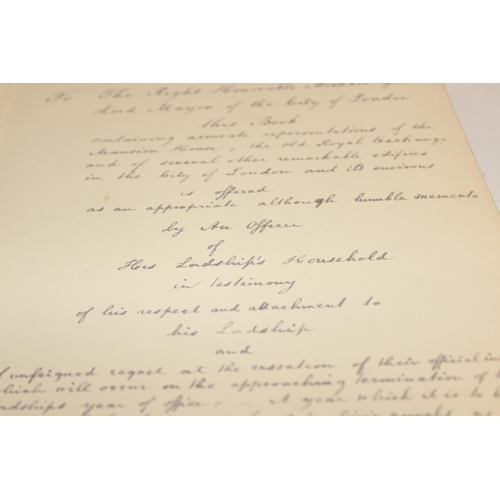 To The Right Honourable
Lord Mayor of the City of London
this Book
containing accurate representations of the
Mansion House, the Old Royal Exchange
and of several other remarkable edifices
in the City of London and its environs
is offered
as an appropriate although humble memento
by An Officer
of
His Lordship's Household
in testimony
of his respect and attachment to
his Lordship
and
of unfeigned regret at the cessation of their official
which will occur on the approaching termination of
Lordships year of office. — A year which it is to